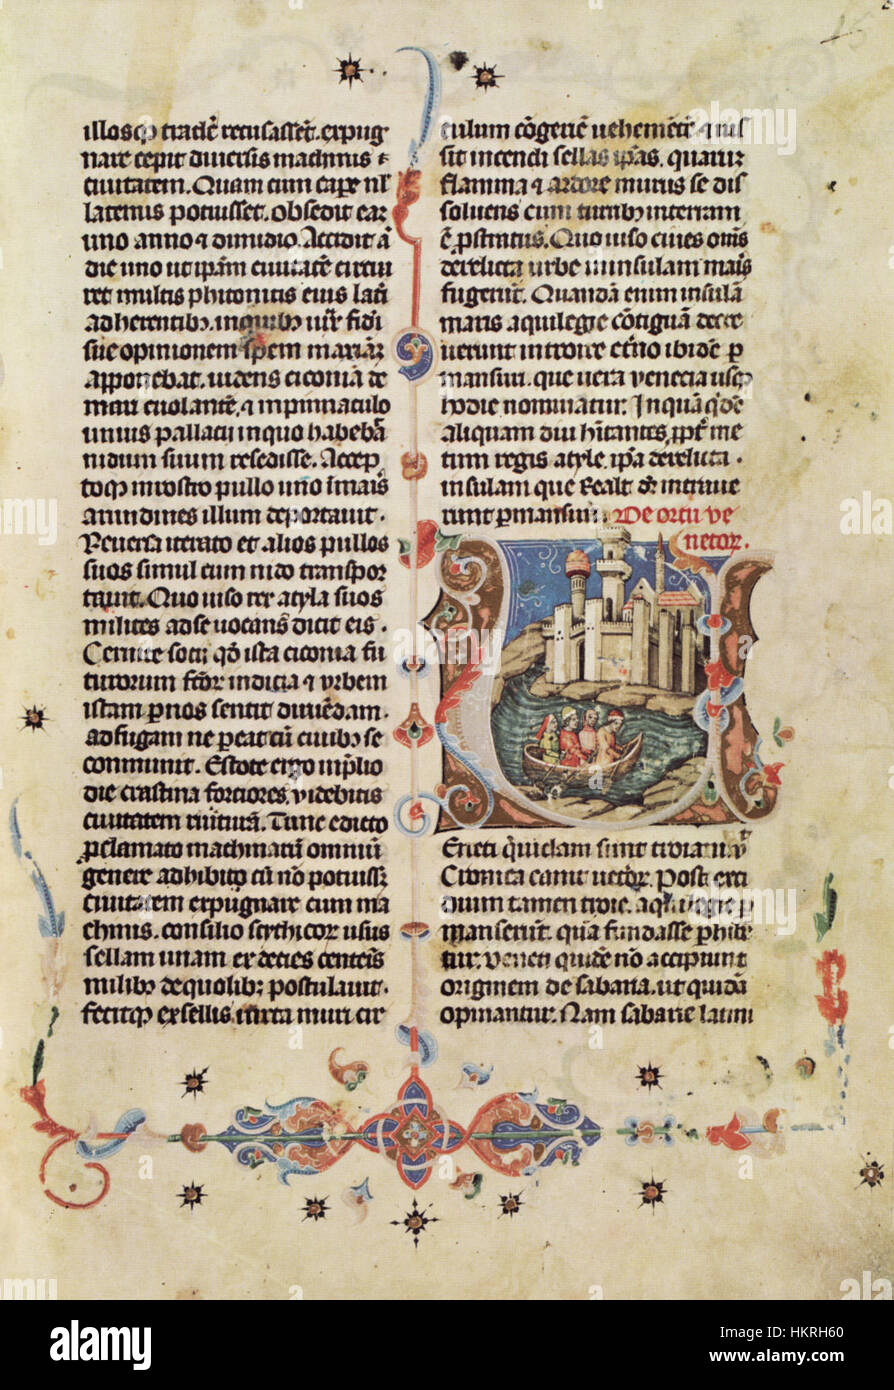 illosqȝ tradẽ recusassẽt. expug
nare cepit diuersis machinis
ciuitatem. Quam cum capẽ nl̃
latenus potuisset. obsedit eaꝛ
uno anno ⁊ dimidio. Accidit ã
die uno ut ipãm ciuitatẽ circui
ret multis phitonicis eius lati
adherentibȝ. in quibȝ iux̃ fidei
sue opinionem spem maximã
apponebat. uidens ciconiã de
mari euolantẽ. ⁊ in pinnaculo
unius pallacii in quo habebã
nidum suum resedisse. Accep
toqȝ in rostro pullo uno int̃ maris
arundines illum deportauit.
Reuersa iterato et alios pullos
suos simul cum nido transpor
tauit. Quo uiso rex atyla suos
milites ad se uocans dicit eis.
Cernite socii qð ista ciconia fu
turorum sentit indicia ⁊ urbem
istam ꝑ nos sentit diruendam.
ad fugam ne pereat cũ ciuibȝ se
communit. Estote ergo in p̃lio
die crastina forciores. ⁊ uidebitis
ciuitatem ruituram. Tunc edicto
ꝓclamato machinacũ omniũ
genere adhibito cũ nõ potuissȝ
ciuitatem expugnare cum ma
chinis. consilio scythicoꝝ usus
sellam unam ex decies centeis
milibȝ de quolibȝ postulauit.
fecitqȝ ex sellis. iuxta muri cir
culum cõgeriẽ uehemẽt̃ ⁊ ius
sit incendi sellas ip̃as. quatuꝛ
flamma ⁊ ardore murus se dis
soluens cum turribȝ in terram
ẽ ꝓstratus. Quo uiso ciues om̃s
derelicta urbe in insulam maris
fugerũt. Quandã enim insulã
maris aquilegie cõtiguã decre
uerunt introire et uĩo ibidẽ ꝑ
mansuri. que uera uenecia usqȝ
hodie nominatur. In qua q̃dẽ
aliquam diu hĩtantes. ꝓpt̃ me
tum regis atyle. ip̃a derelicta.
insulam que Realt dr̃ intraue
runt ꝑmansuri. De ortu ve
netoꝝ.
Eneti quidam sunt troiani. ut
Cronica canit uetoꝝ. Post exci
dium tamen troie. aquilegie ꝑ
manserũt. quã fundasse ꝑhibẽ
tur. ueneti quidẽ nõ accipiunt
originem de sabaria. ut quidã
opinantur. Nam sabarie latini
alamy
Image ID: HKRH60
www.alamy.com